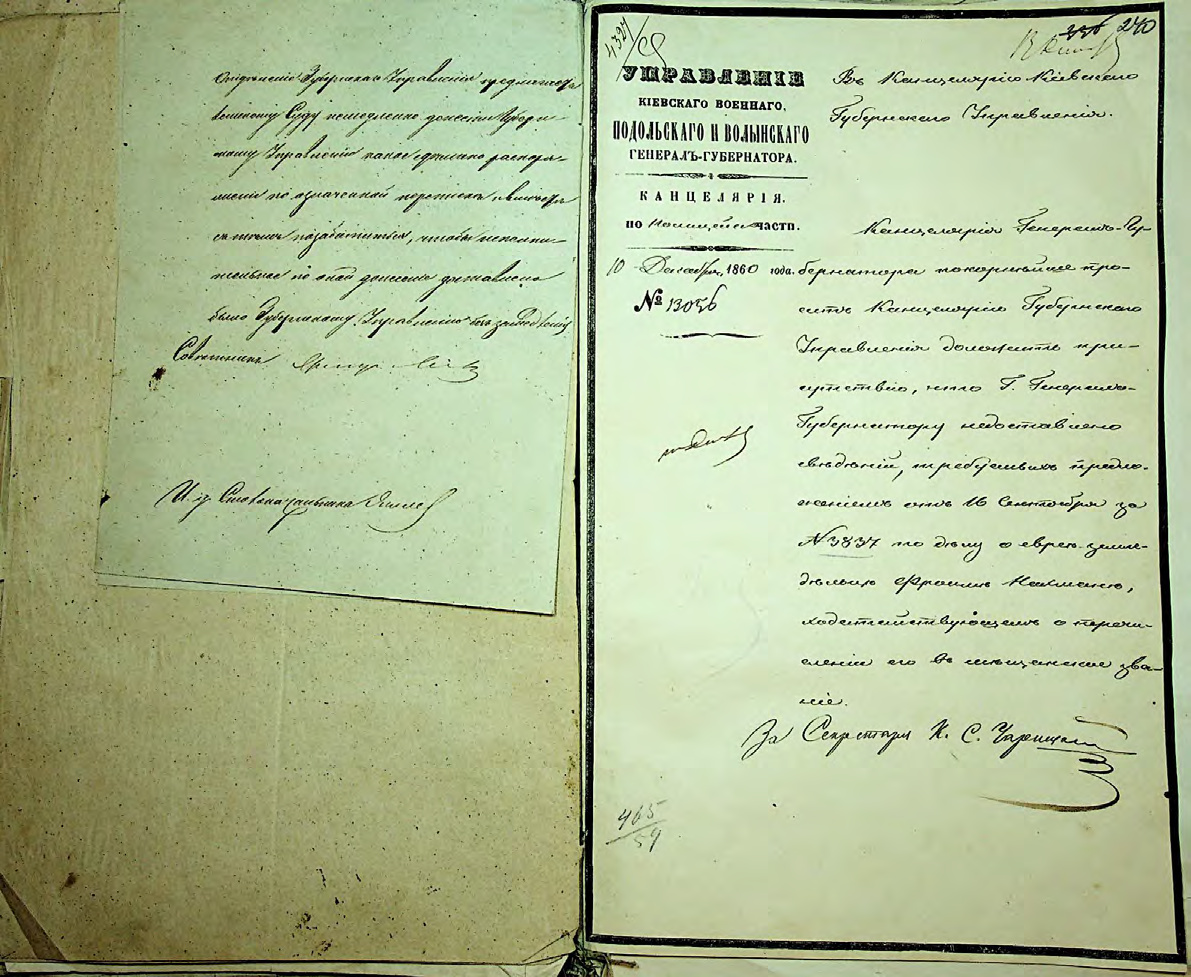 Отделение Губернское Правление предписывает
Земскому Суду немедленно донести Губерн
скому Правлению какое сделано распоря-
жение по означенной переписке и вместе
съ тѣмъ позаботиться, чтобы исполни-
тельное по оной донесение доставлено
было Губернскому Правлению безъ замедления
Совѣтникъ
И. д. Столоначальника
4327
336 240
УПРАВЛЕНІЕ
КІЕВСКАГО ВОЕННАГО,
ПОДОЛЬСКАГО И ВОЛЫНСКАГО
ГЕНЕРАЛЪ-ГУБЕРНАТОРА.
КАНЦЕЛЯРІЯ.
по части.
10 Декабря, 1860 года.
№ 13056
Въ Канцелярію Кіевскаго
Губернскаго Правленія.
Канцелярія Генералъ-Гу-
бернатора покорнѣйше про-
ситъ Канцелярію Губернскаго
Правленія доложить при-
сутствію, что Г. Генералъ-
Губернатору недоставлено
свѣдѣній, требуемыхъ предло-
женіемъ отъ 16 Сентября за
№ 3837 по дѣлу о евреѣ земле-
дѣльцѣ Фроимѣ
ходатайствующемъ о перечи-
сленіи его въ мѣщанское зва-
ніе.
За Секретаря К. С.
465
59